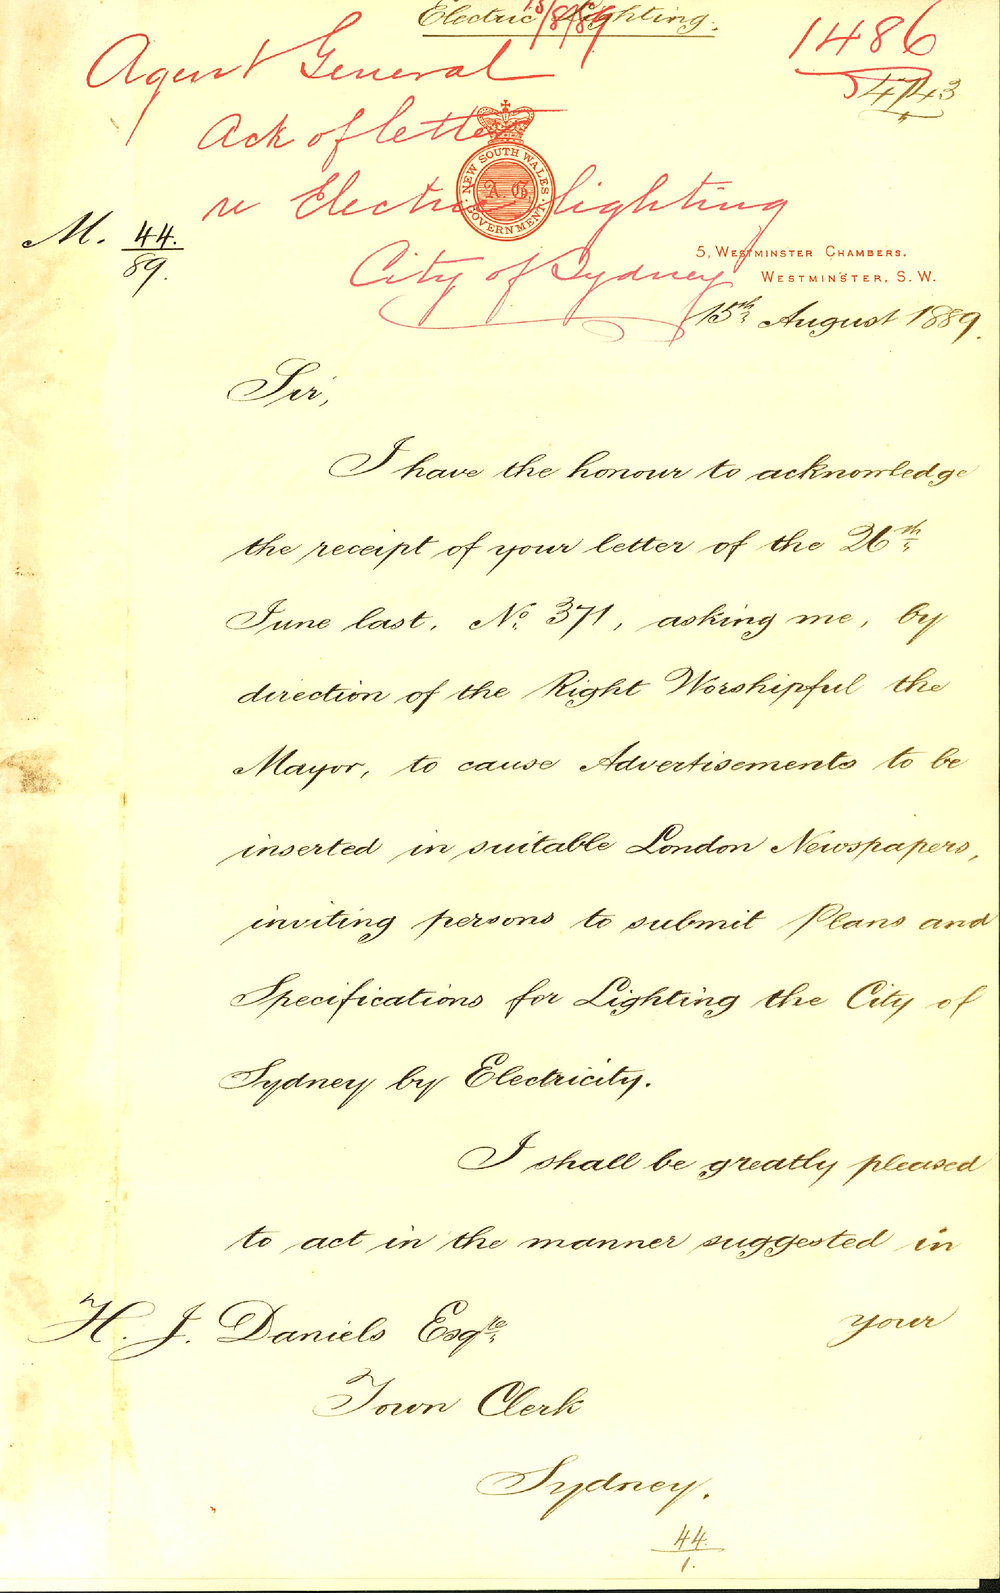 Electric Lighting.
15/8/89
1486
4743
Agent General
Ack of letter
re Electric lighting
City of Sydney
NEW SOUTH WALES
A. G.
GOVERNMENT.
M. 44.
89.
5, WESTMINSTER CHAMBERS,
WESTMINSTER, S. W.
15th August 1889.
Sir,
I have the honour to acknowledge
the receipt of your letter of the 26th
June last, No. 371, asking me, by
direction of the Right Worshipful the
Mayor, to cause Advertisements to be
inserted in suitable London Newspapers,
inviting persons to submit Plans and
Specifications for Lighting the City of
Sydney by Electricity.
I shall be greatly pleased
to act in the manner suggested in
your
H. J. Daniels Esqre.
Town Clerk
Sydney.
44.
1.